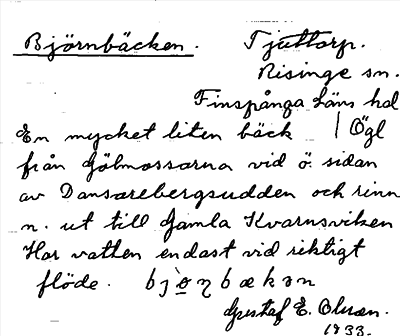 Björnbäcken. Tjuttorp.
Risinge sn.
Finspånga läns hd
En mycket liten bäck | Ögl
från Gölmossarna vid ö. sidan
av Dansarebergsudden och rinn
n. ut till Gamla Kvarnsviken
Har vatten endast vid riktigt
flöde. bjo̱ɳbækən
Gustaf E. Olsson.
1933.